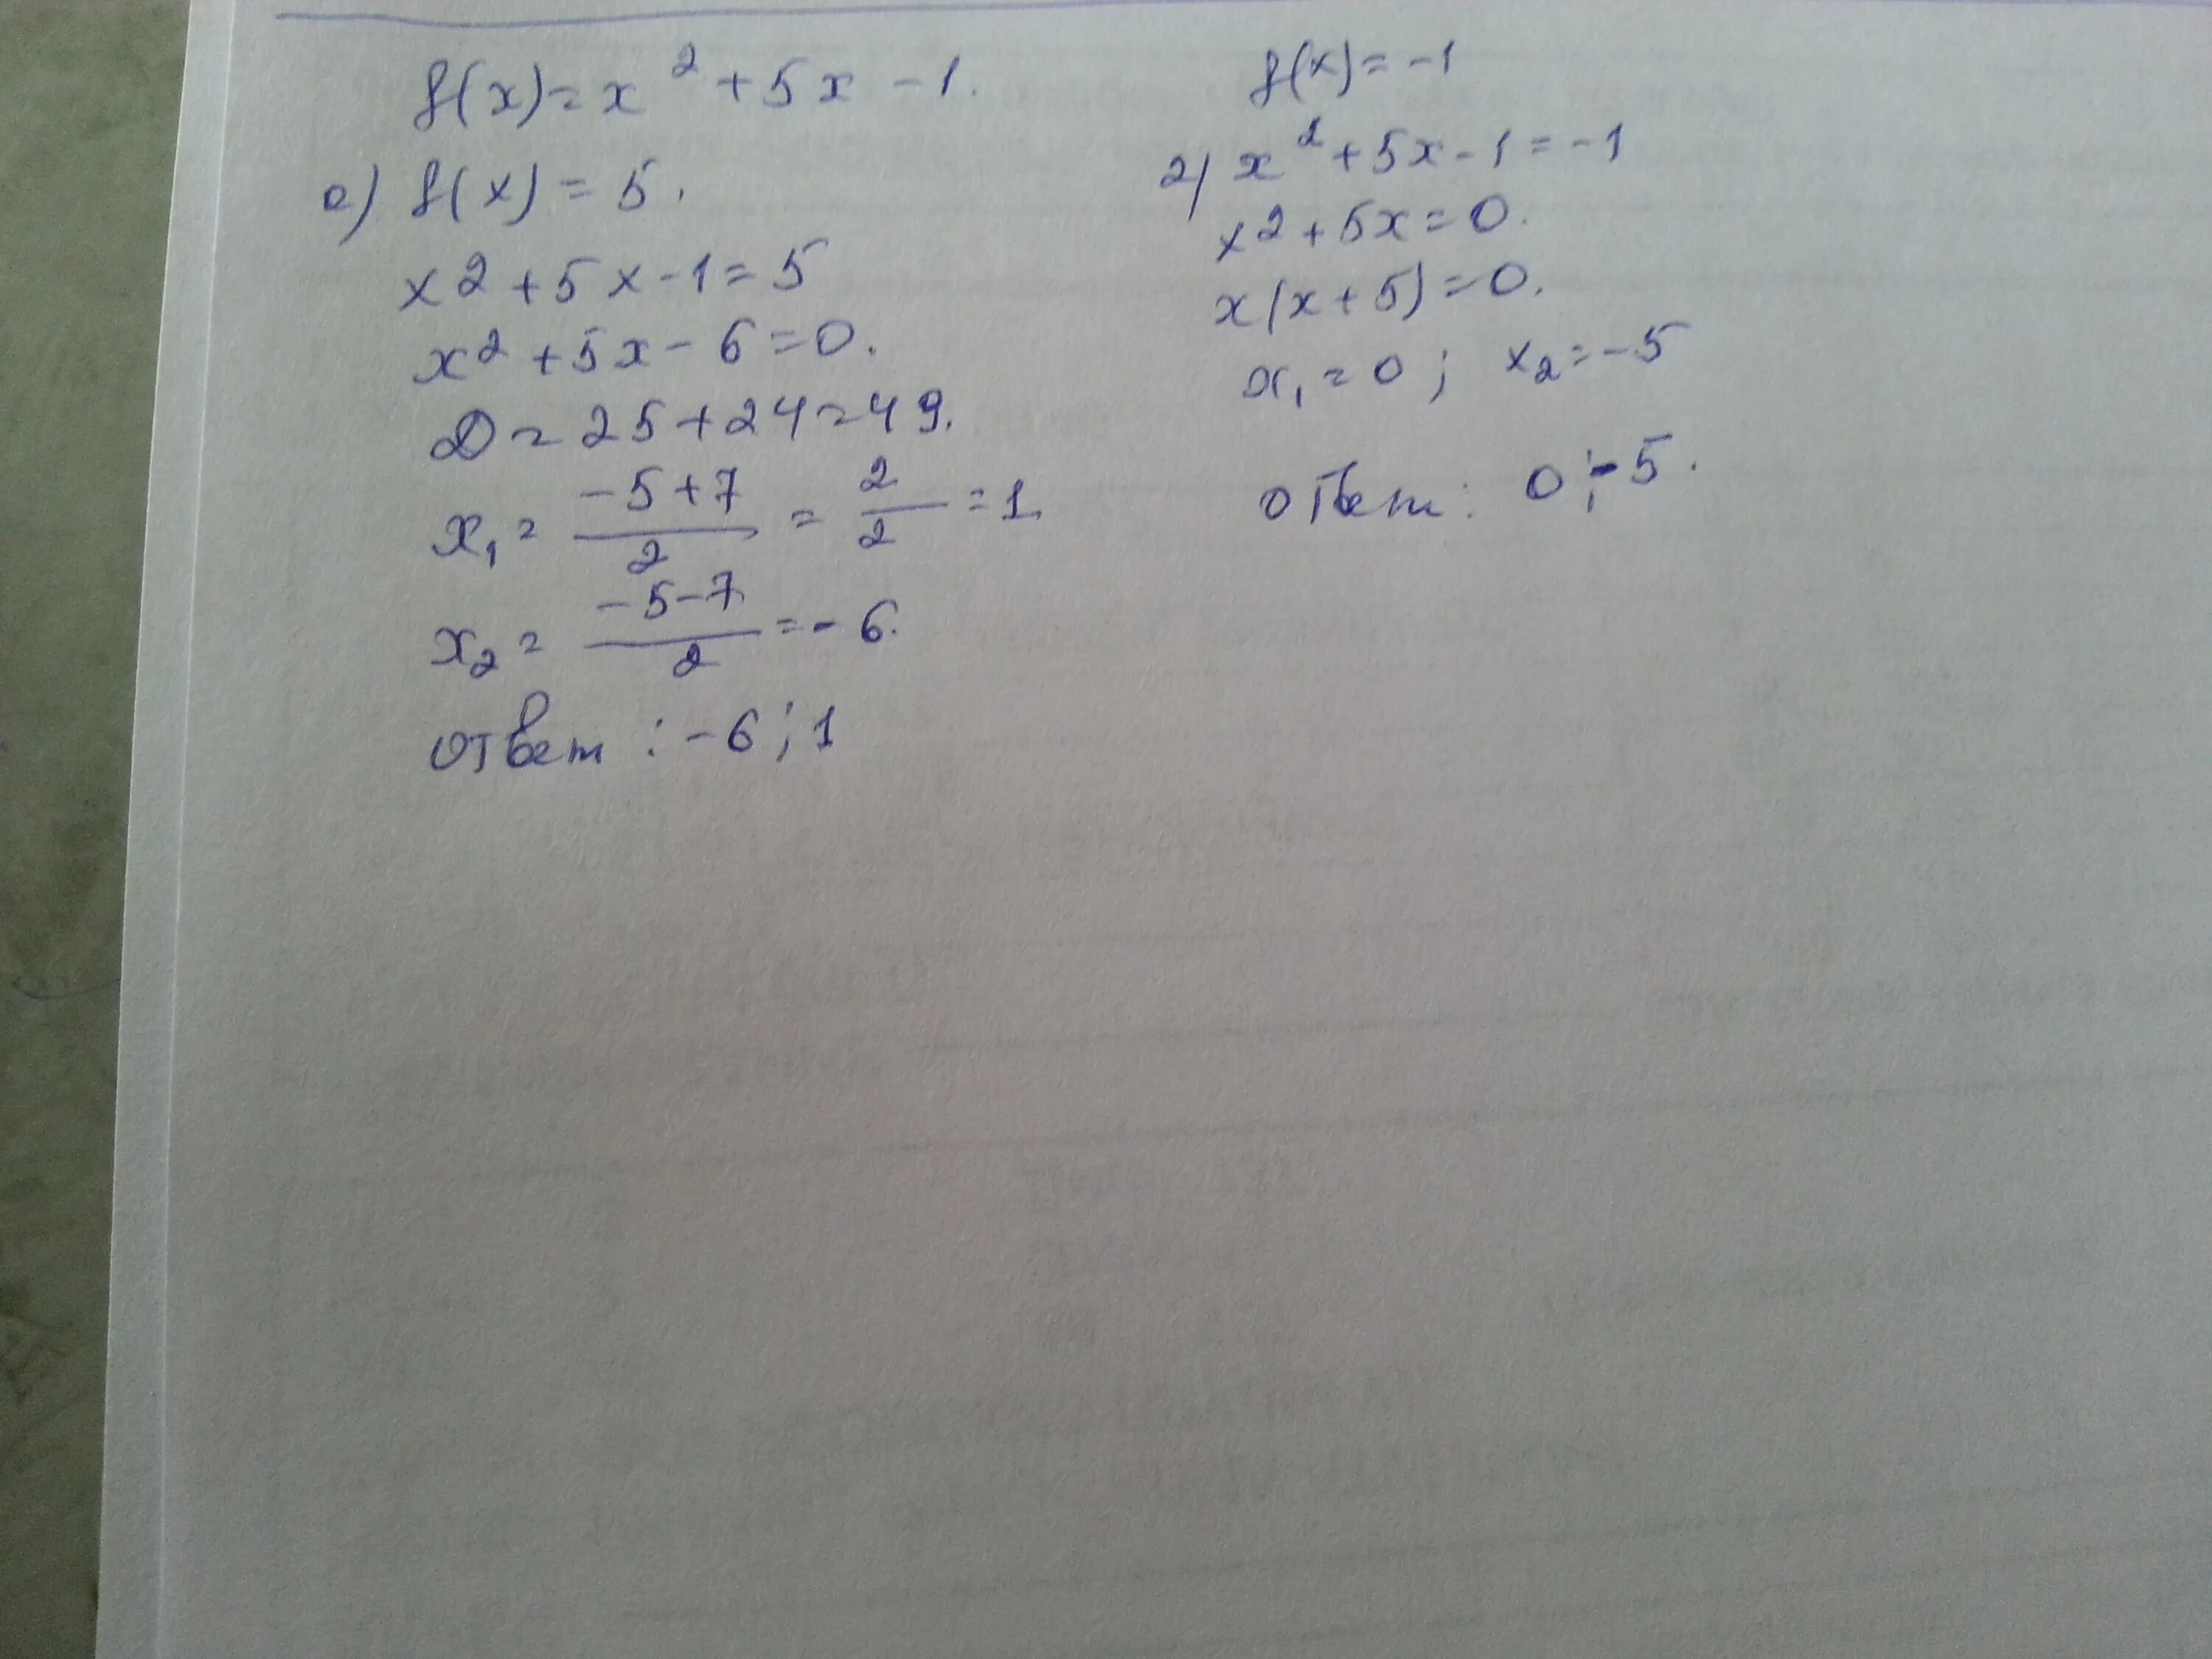 f(x) = x² + 5x - 1.
a) f(x) = 5.
x2 + 5x - 1 = 5
x² + 5x - 6 = 0.
D = 25 + 24 = 49.
x₁ = (-5+7)/2 = 2/2 = 1
x₂ = (-5-7)/2 = -6.
ответ: -6; 1
f(x) = -1
2) x² + 5x - 1 = -1
x2 + 5x = 0.
x(x + 5) = 0.
x₁ = 0; x₂ = -5
ответ: 0; -5.